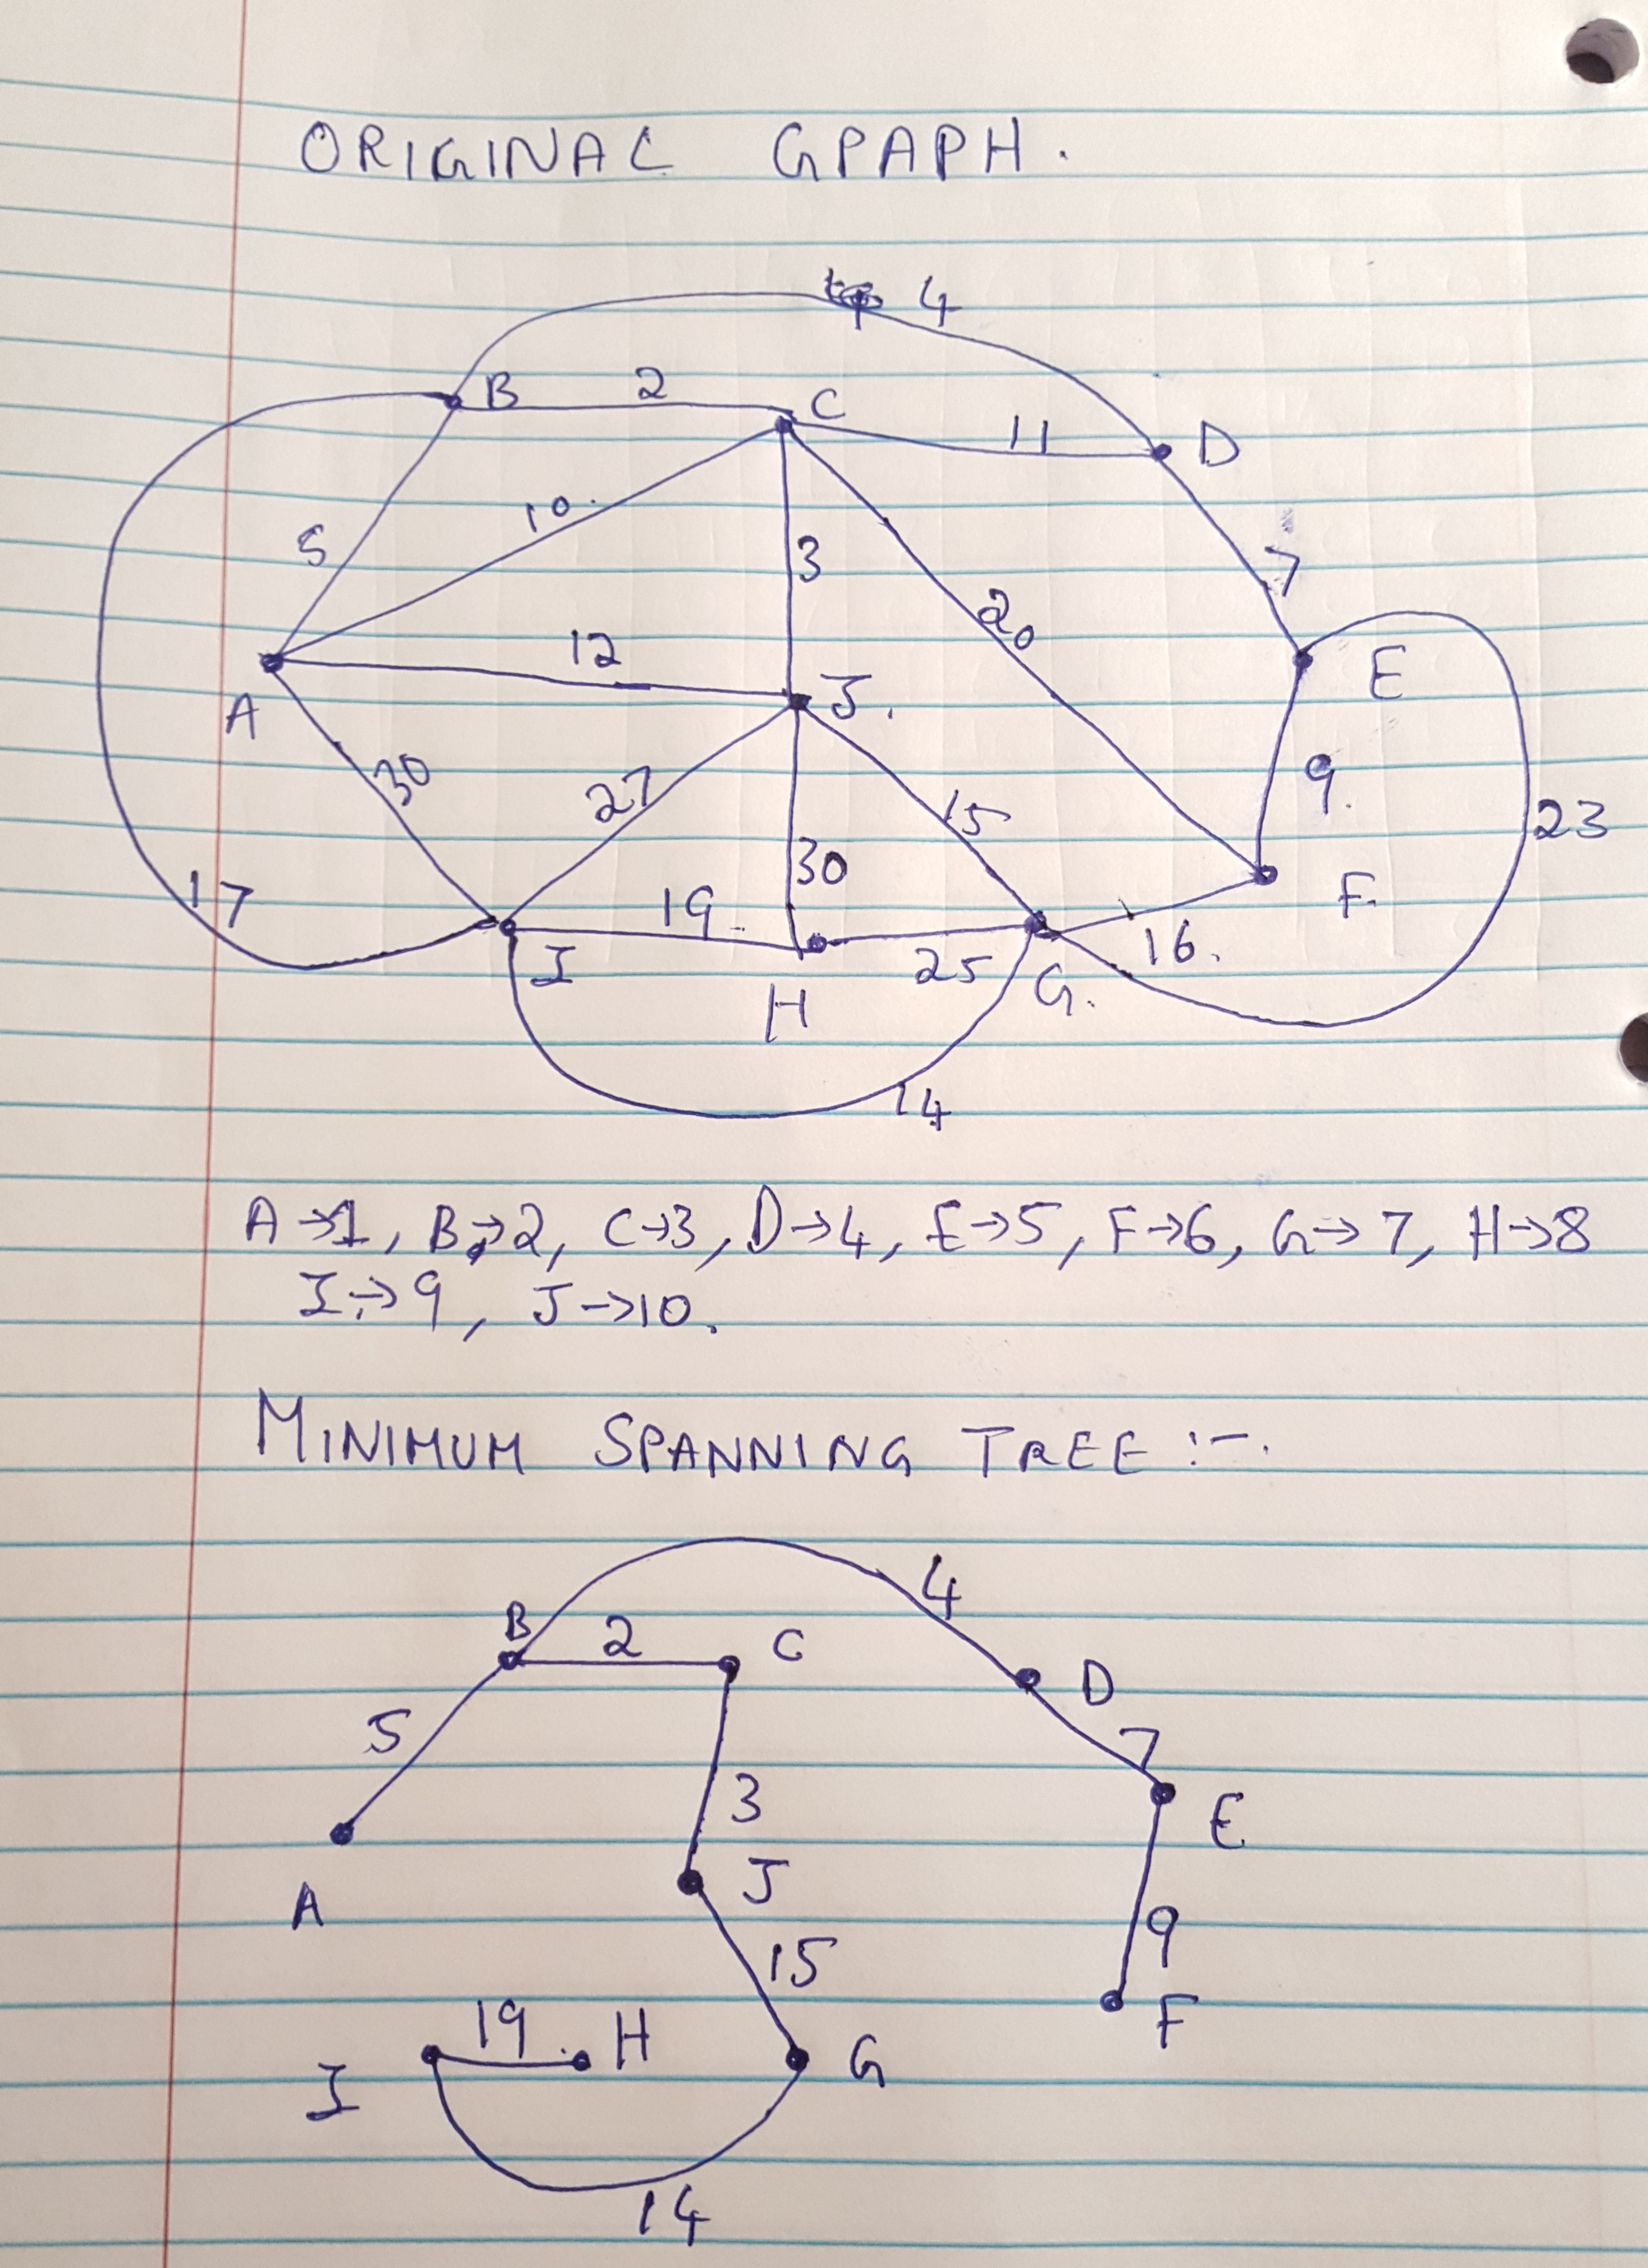 ORIGINAL GPAPH.
4
B 2 C
11 D
10.
5 3 7
20
12
A J. E
30 27 15 9.
23
17 19. 30 F.
I 25 16.
H G.
14
A→1, B→2, C→3, D→4, E→5, F→6, G→7, H→8
I→9, J→10.
MINIMUM SPANNING TREE :-.
4
B 2 C
D
5 7
3 E
J
A
15 9
19. H F
I G
14